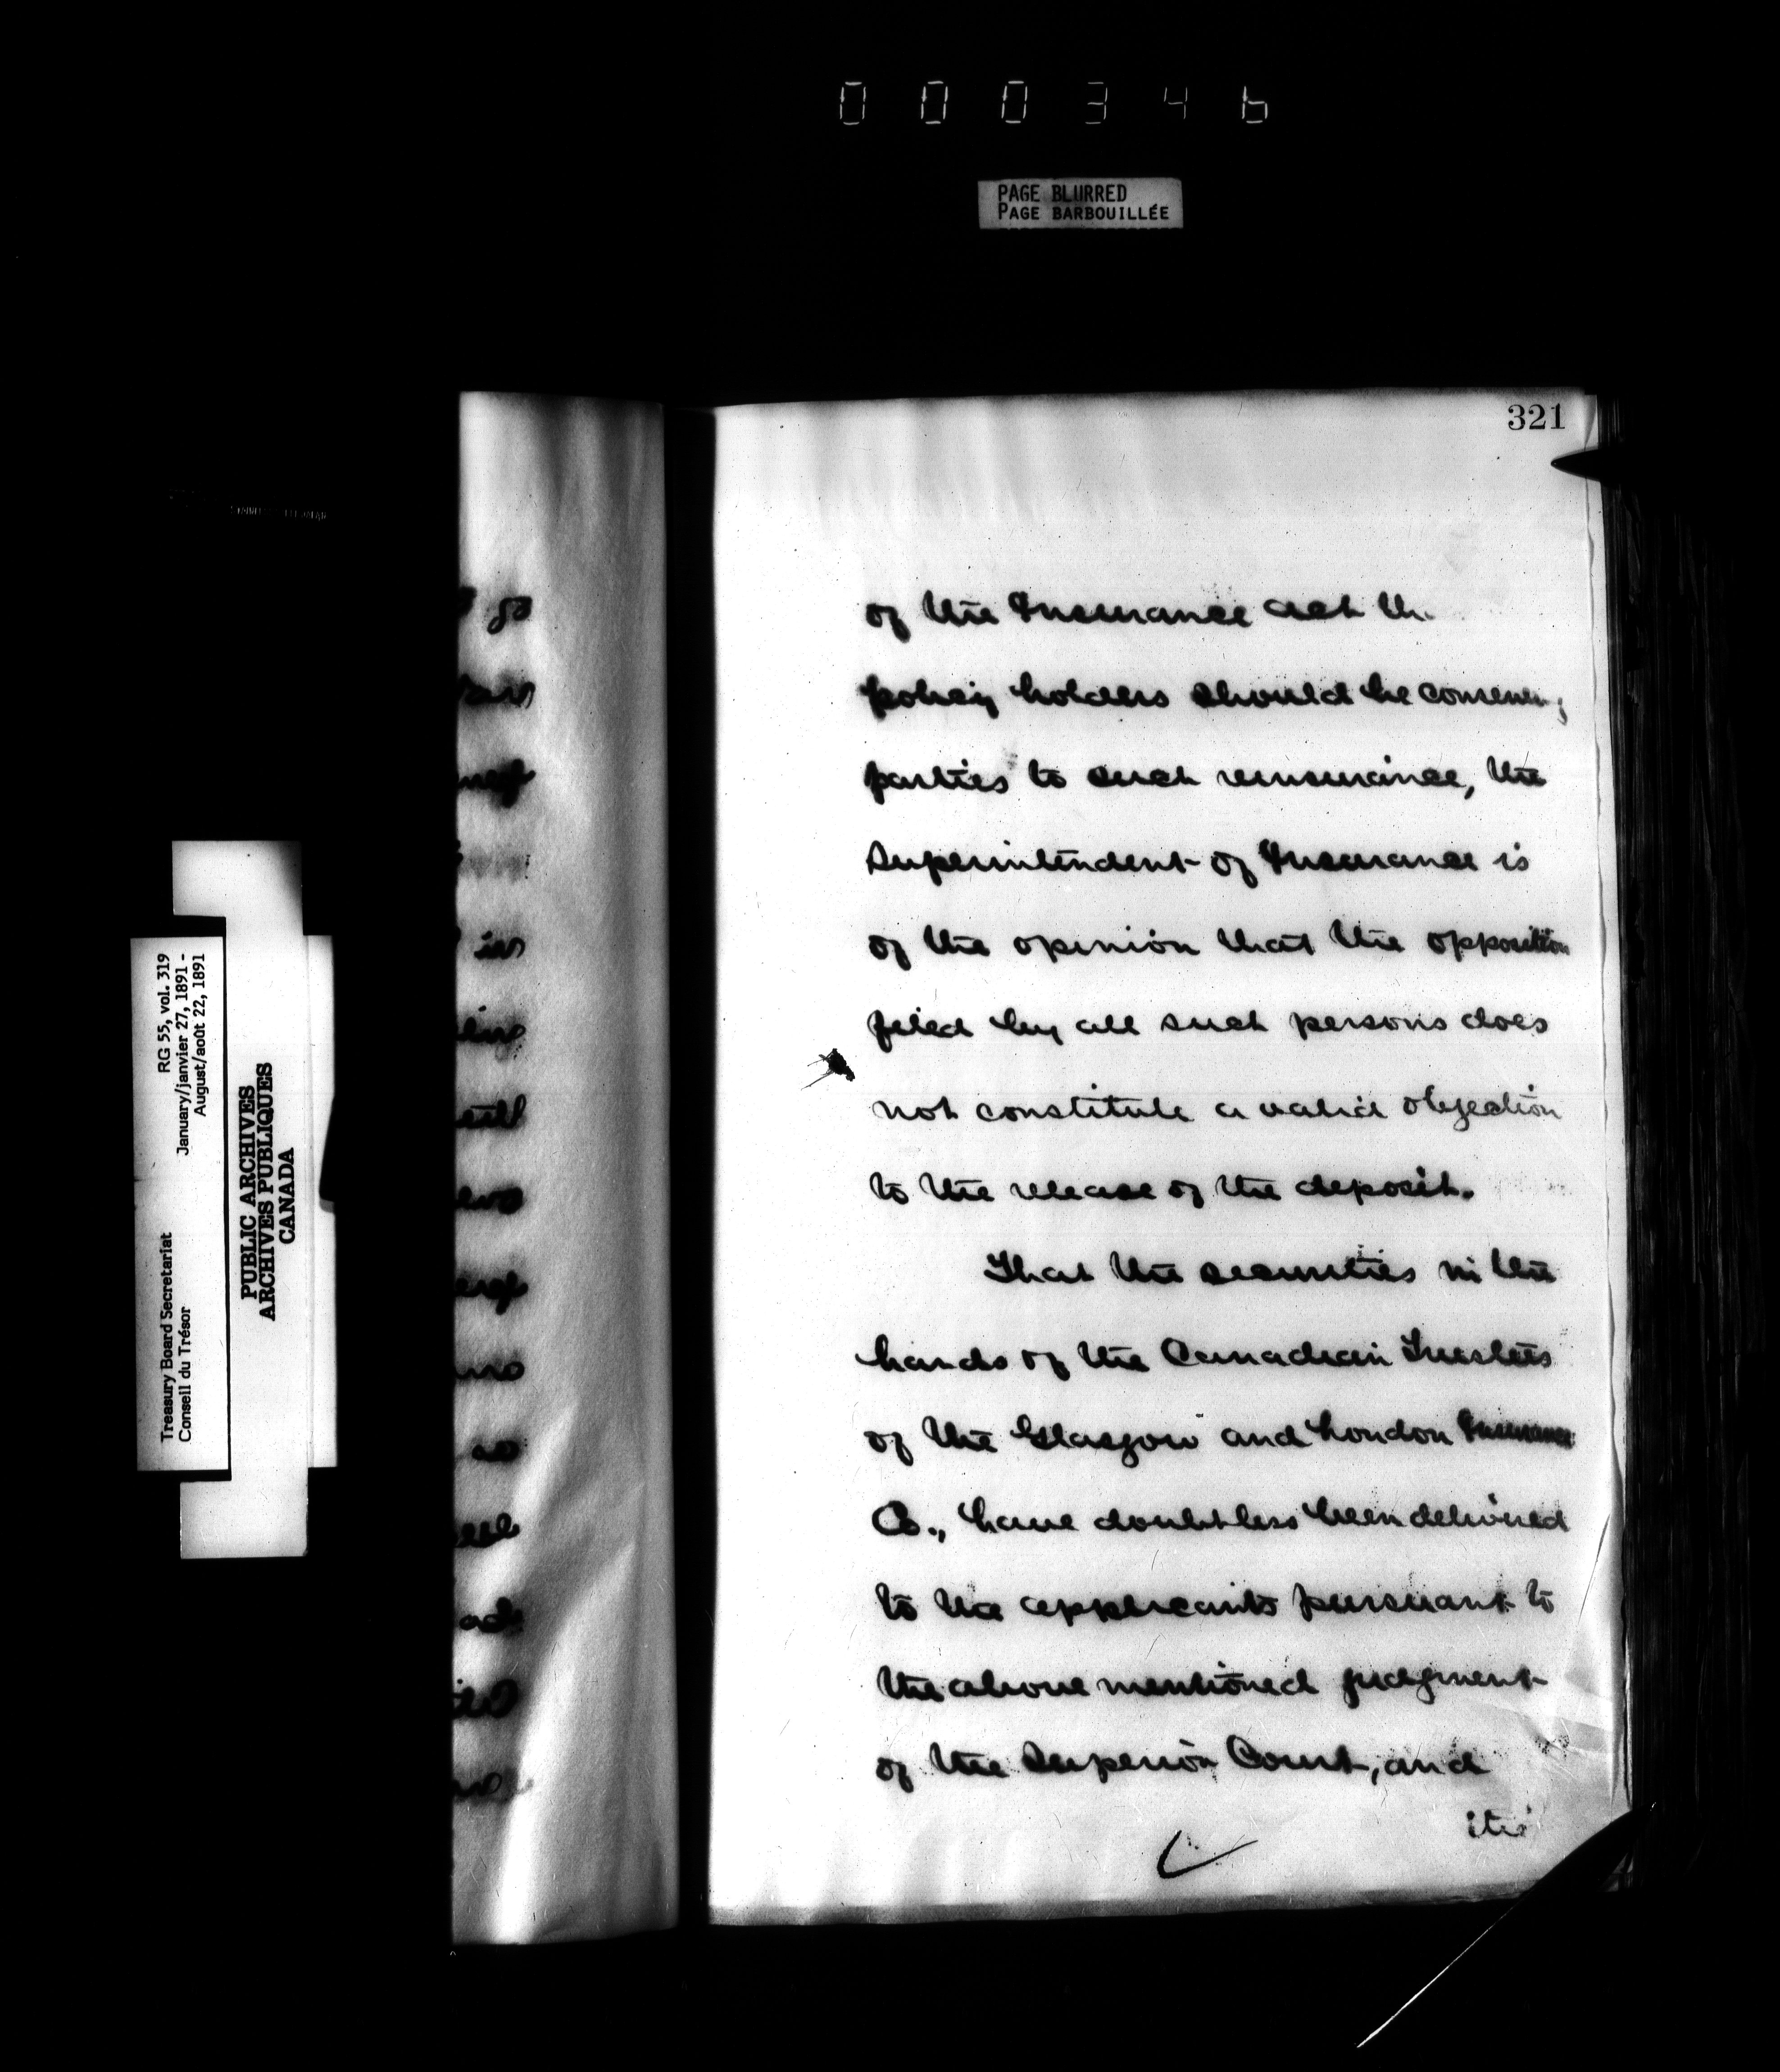 000346
PAGE BLURRED
PAGE BARBOUILLÉE
321
of the Insurance act
policy holders should be
parties to such reinsurance, the
Superintendent of Insurance is
of the opinion that the opposition
filed by all such persons does
not constitute a valid objection
to the release of the deposit.
That the securities in the
hands of the Canadian Trustees
of the Glasgow and London Insurance
Co., have doubtless been delivered
to the applicants pursuant to
the above mentioned judgment
of the Superior Court, and
Treasury Board Secretariat RG 55, vol. 319
Conseil du Trésor January/janvier 27, 1891 -
August/août 22, 1891
PUBLIC ARCHIVES
ARCHIVES PUBLIQUES
CANADA